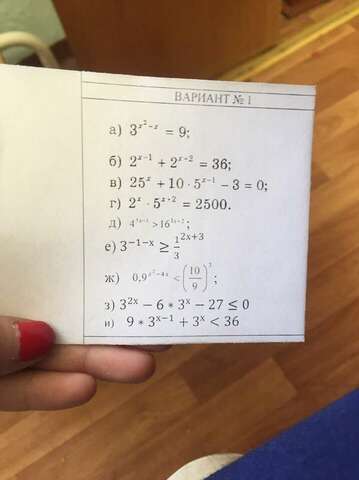 ВАРИАНТ № 1
а) 3^{x^2-x} = 9;
б) 2^{x-1} + 2^{x+2} = 36;
в) 25^x + 10 · 5^{x-1} − 3 = 0;
г) 2^x · 5^{x+2} = 2500.
е) 3^{-1-x} ≥ \frac{1}{3}^{2x+3}
ж) 0,9^{x^2-4x} < \left(\frac{10}{9}\right)^3;
з) 3^{2x} − 6 * 3^x − 27 ≤ 0
и) 9 * 3^{x-1} + 3^x < 36